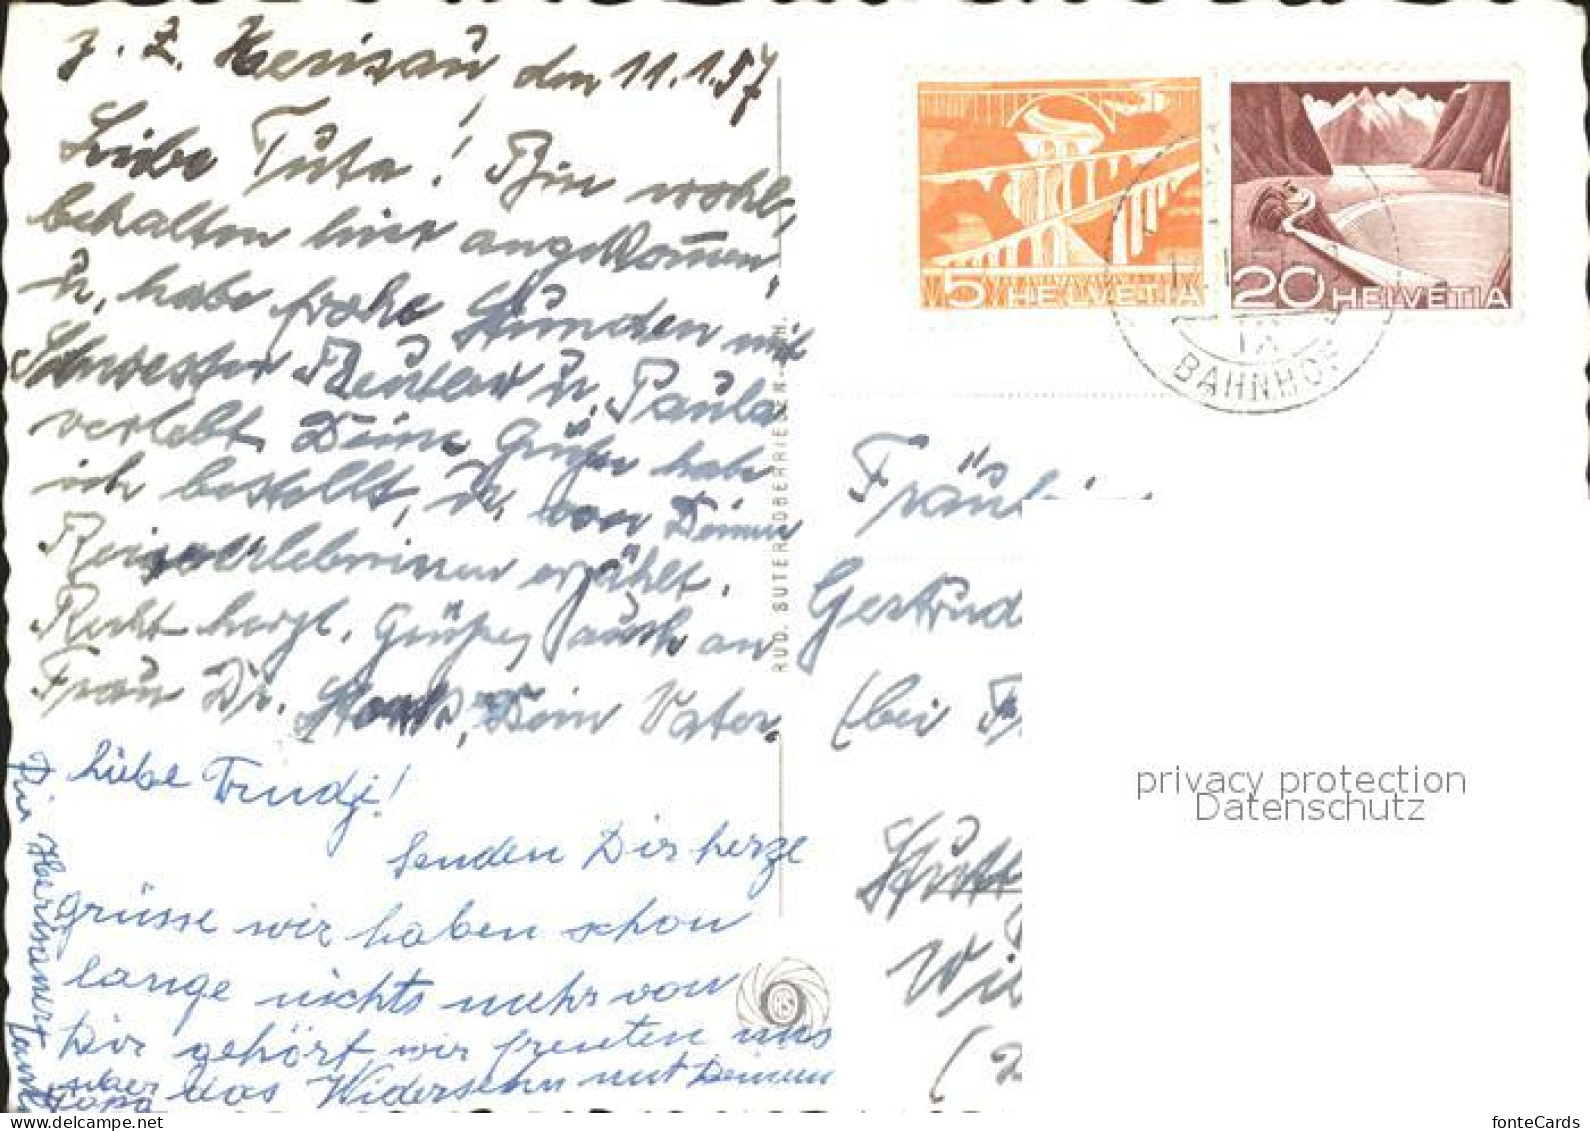 z. Z. Herisau, den 11.1.57
Liebe Tuta! Bin wohl,
behalten hier angekommen,
u. habe frohe Stunden mit
Schwester u. Paula
verlebt. Deine Grüße habe
ich bestellt, u. von Deinen
Reiseerlebnissen erzählt.
Recht herzl. Grüße, auch an
Frau Dr. Dein Vater.
Liebe Trudj!
Senden Dir herzl
grüsse wir haben schon
lange nichts mehr von
Dir gehört wir freuten uns
über das Widersehn mit Deinem
Papa
Die Herisauer
RUD. SUTER, OBERRIEDEN-ZCH.
5 HELVETIA
20 HELVETIA
BAHNHOF
Fräulein
Gertrud
(bei F
Stutt
Wi
(2
privacy protection
Datenschutz
fonteCards
www.delcampe.net